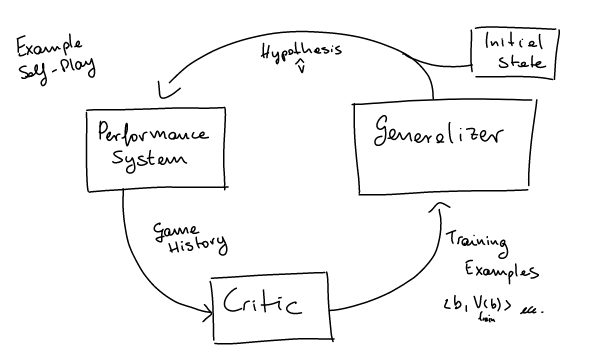 Example
Self-Play
Hypothesis
V̂
Initial
State
Performance
System
Generalizer
Game
History
Training
Examples
<b, V(b)>
train
Critic